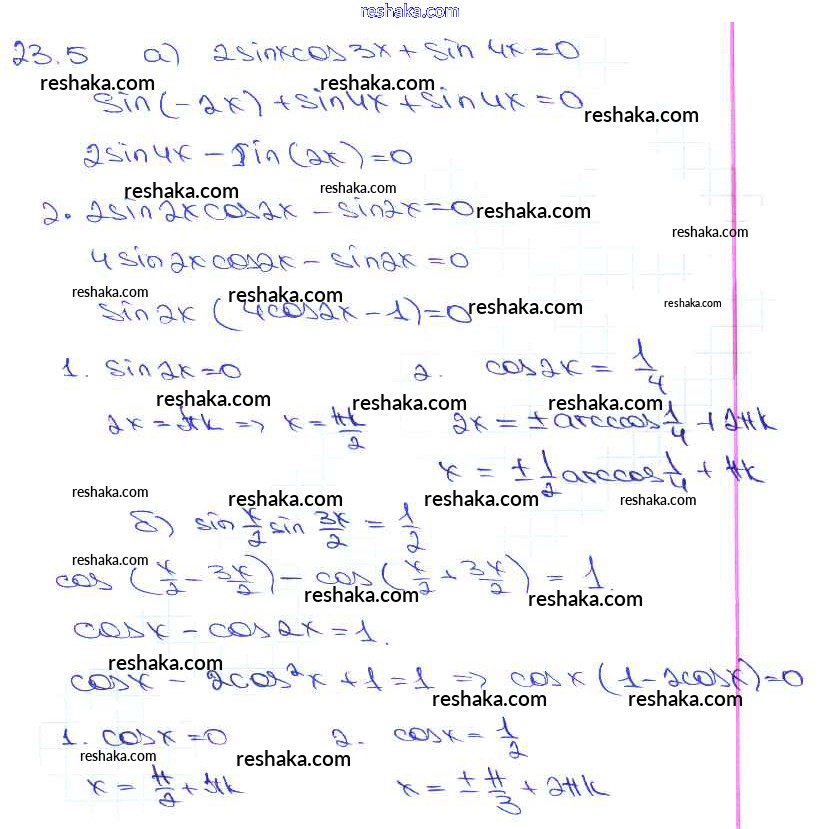 reshaka.com
23.5 а) 2sinxcos3x + sin 4x = 0
reshaka.com reshaka.com
sin(-2x) + sin4x + sin4x = 0 reshaka.com
2sin4x - sin(2x) = 0
reshaka.com reshaka.com
2. 2sin2xcos2x - sin2x = 0 reshaka.com
reshaka.com
4sin2xcos2x - sin2x = 0
reshaka.com reshaka.com reshaka.com
sin2x (4cos2x - 1) = 0 reshaka.com
1. sin2x = 0 2. cos2x = 1/4
reshaka.com reshaka.com reshaka.com
2x = πk => x = πk/2 2x = ± arccos 1/4 + 2πk
x = ± 1/2 arccos 1/4 + πk
reshaka.com reshaka.com reshaka.com reshaka.com
б) sin x/2 sin 3x/2 = 1/2
reshaka.com
cos (x/2 - 3x/2) - cos (x/2 + 3x/2) = 1.
reshaka.com reshaka.com
cosx - cos2x = 1.
reshaka.com
cosx - 2cos²x + 1 = 1 => cosx (1 - 2cosx) = 0
reshaka.com reshaka.com
1. cosx = 0 2. cosx = 1/2
reshaka.com reshaka.com
x = π/2 + πk x = ± π/3 + 2πk